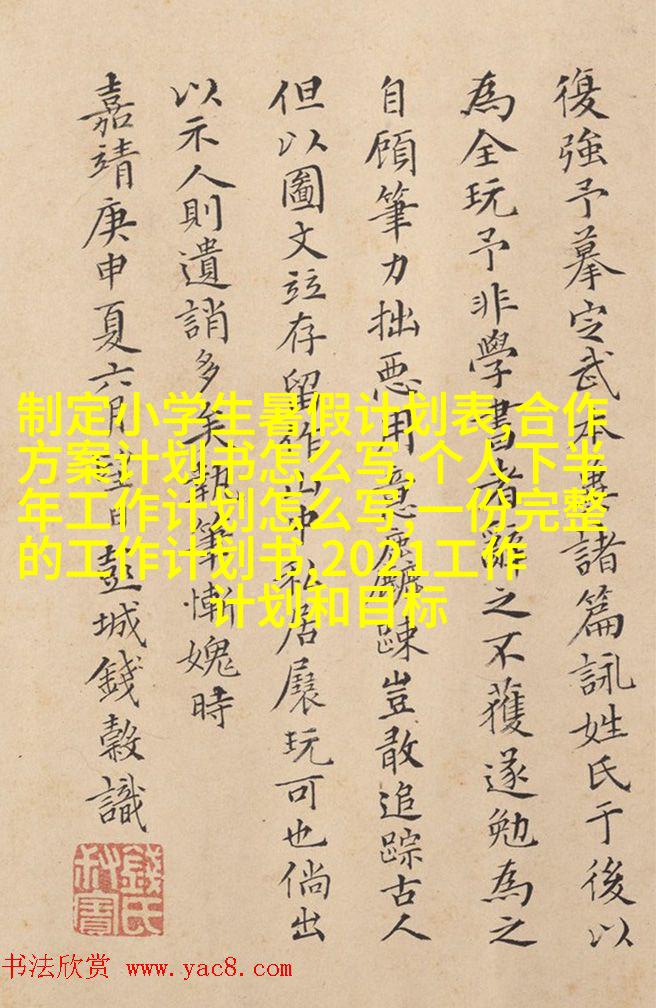 復強予摹定武本兼諸篇詠姓氏于後以
為全玩予非學書者辭之不獲遂勉為之
自顧筆力拙惡用意麤踈豈敢追踪古人
但以圖文竝存留作山中私居展玩可也倘出
以示人則遺誚多矣執筆慚媿時
嘉靖庚申夏六月望日彭城錢穀識
錢氏叔寶
制定小学生暑假计划表,合作
方案计划书怎么写,个人下半
年工作计划怎么写,一份完整
的工作计划书,2021工作
计划和目标
书法欣赏 www.yac8.com